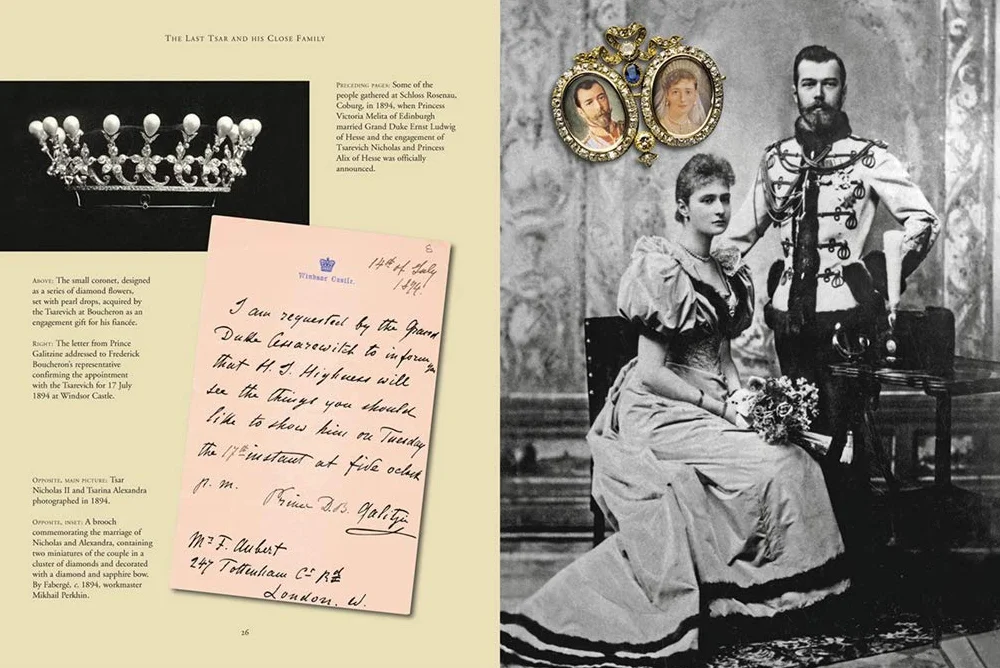 The Last Tsar and his Close Family
Preceding pages: Some of the
people gathered at Schloss Rosenau,
Coburg, in 1894, when Princess
Victoria Melita of Edinburgh
married Grand Duke Ernst Ludwig
of Hesse and the engagement of
Tsarevich Nicholas and Princess
Alix of Hesse was officially
announced.
Above: The small coronet, designed
as a series of diamond flowers,
set with pearl drops, acquired by
the Tsarevich at Boucheron as an
engagement gift for his fiancée.
Right: The letter from Prince
Galitzine addressed to Frederick
Boucheron's representative
confirming the appointment
with the Tsarevich for 17 July
1894 at Windsor Castle.
Opposite, main picture: Tsar
Nicholas II and Tsarina Alexandra
photographed in 1894.
Opposite, inset: A brooch
commemorating the marriage of
Nicholas and Alexandra, containing
two miniatures of the couple in a
cluster of diamonds and decorated
with a diamond and sapphire bow.
By Fabergé, c. 1894, workmaster
Mikhail Perkhin.
Windsor Castle.
14th of July
1894.
I am requested by the Grand
Duke Cesarewitch to inform you
that H. I. Highness will
see the things you should
like to show him on Tuesday
the 17th instant at five oclock
p. m.
Prince D. B. Galitzin
Mr F. Aubert
247 Tottenham Ct Rd
London. W.
26